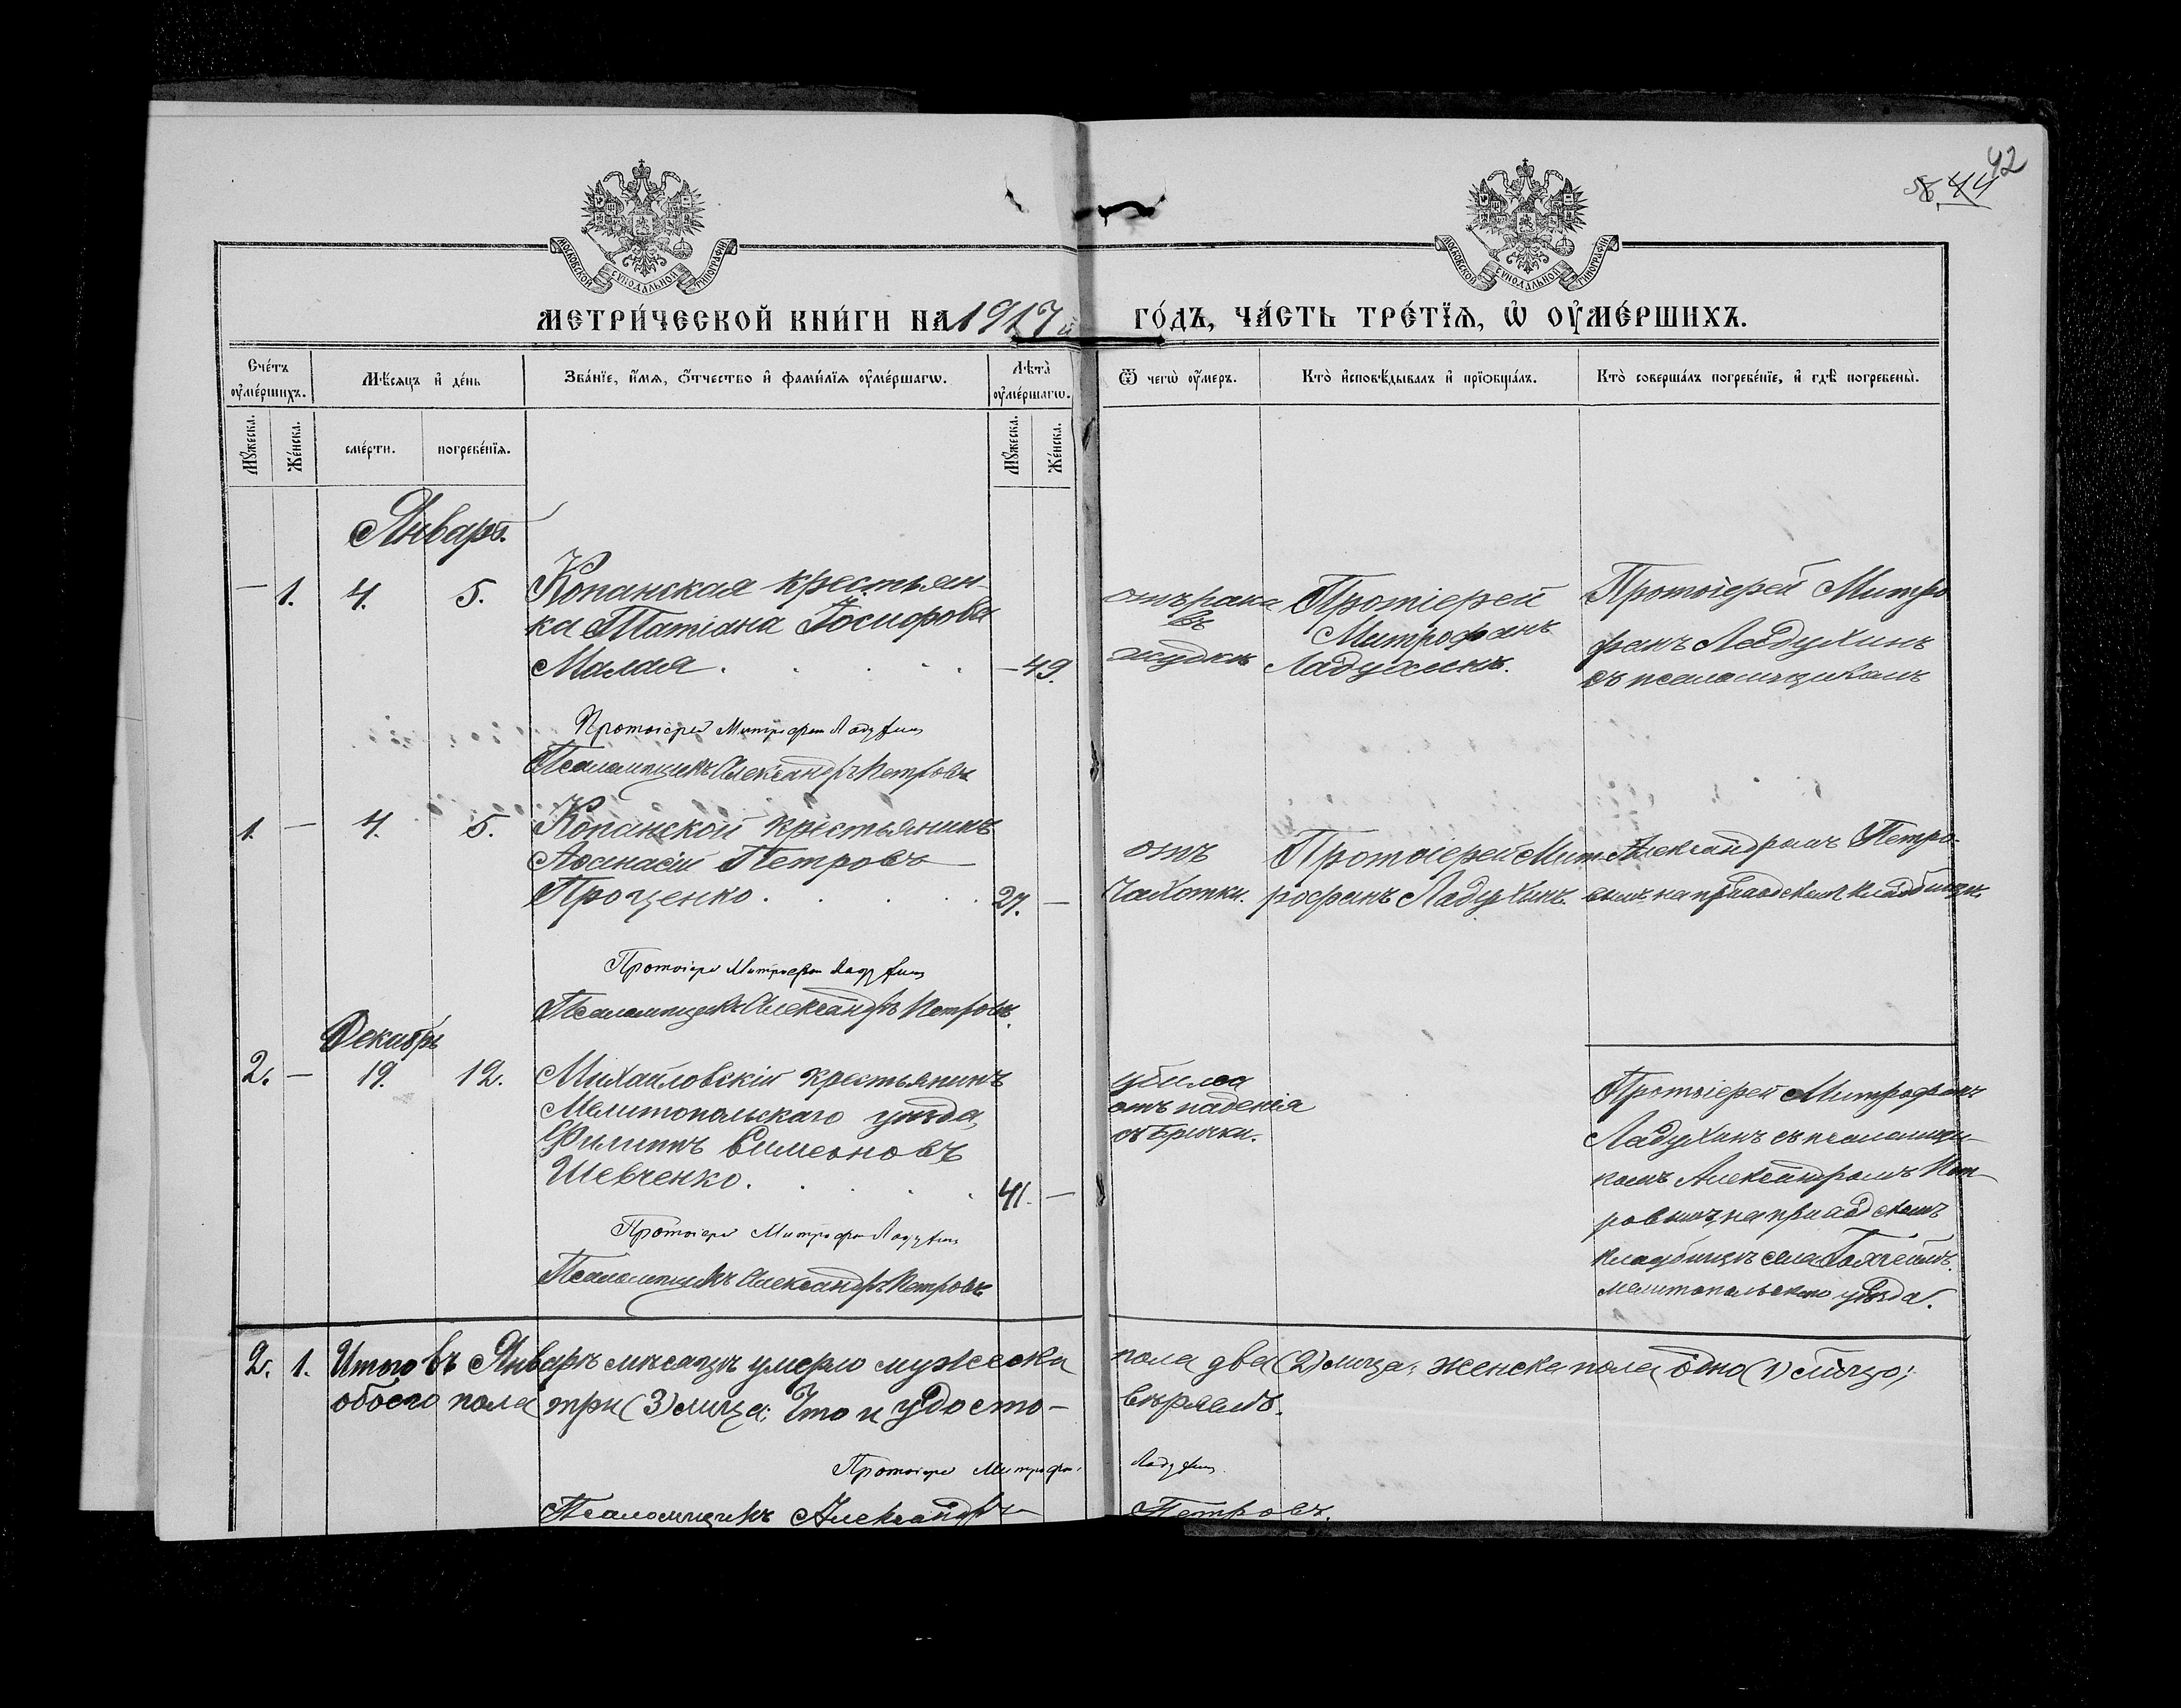 42
44
МОСКОВСКОЙ СУНОДАЛЬНОЙ ТИПОГРАФІИ
МОСКОВСКОЙ СУНОДАЛЬНОЙ ТИПОГРАФІИ
МЕТРИ́ЧЕСКОЙ КНИ́ГИ НА 1917 й
ГО́ДЪ, ЧА́СТЬ ТРЕ́ТЇѦ, Ѡ҆ ОУ҆МЕ́РШИХЪ.
Сче́тъ оу҆ме́ршихъ.
Мѣ́сяцъ и҆ де́нь
Зва́нїе, и҆́мѧ, ѻ҆́тчество и҆ фами́лїѧ оу҆ме́ршагѡ.
Лѣ̀та оу҆ме́ршагѡ.
Ѿ чегѡ̀ оу҆́меръ.
Кто̀ и҆сповѣ́дывалъ и҆ прїѡбща́лъ.
Кто̀ соверша́лъ погребе́нїе, и҆ гдѣ̀ погребены̀.
Мꙋ́жеска.
Же́нска.
сме́рти.
погребе́нїѧ.
Мꙋ́жеска.
Же́нска.
Январь.
— 1. 4. 5. Копанская крестьян-
ка Татіана Іосифова
Малая . . . . . — 49.
отъ рака
въ
желудкѣ
Протіерей
Митрофанъ
Ладухинъ.
Протоіерей Митро
фанъ Ладухинъ
съ псаломщикомъ
Протоіерей Митрофан Ладухин
Псаломщикъ Александръ Петровъ
1. — 4. 5. Копанской крестьянинъ
Аѳанасій Петровъ
Проценко . . . . . 27. —
отъ
чахотки.
Протоіерей Мит
рофанъ Ладухинъ.
Александромъ Петро-
вымъ на приходскомъ кладбищѣ.
Протоіерей Митрофан Ладухин
Псаломщикъ Александръ Петровъ.
Декабрь
2. — 19. 12. Михайловскій крестьянинъ
Мелитопольскаго уѣзда,
Филиппъ Симеоновъ
Шевченко . . . . . 41. —
убился
отъ паденія
съ брички.
Протоіерей Митрофанъ
Ладухинъ съ псаломщи-
комъ Александромъ Пет-
ровымъ, на приходскомъ
кладбищѣ села
Мелитопольскаго уѣзда.
Протоіерей Митрофан Ладухин
Псаломщикъ Александръ Петровъ
2. 1. Итого въ Январѣ мѣсяцѣ умерло мужеска пола два (2) лица; женска пола одно (1) лицо;
обоего пола три (3) лица: Что и удосто- вѣряемъ.
Протоіерей Митрофан Ладухин
Псаломщикъ Александръ Петровъ.